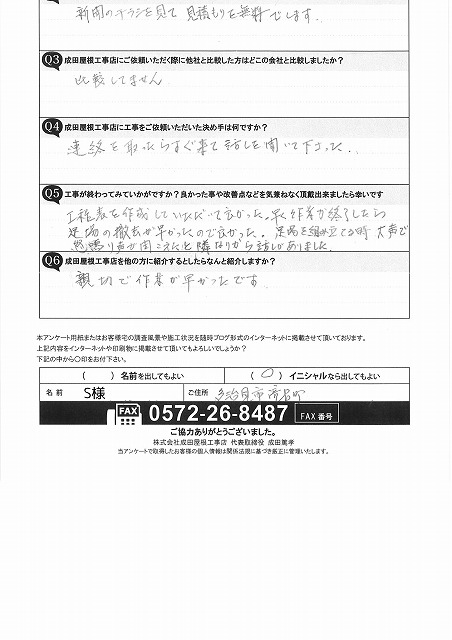 新聞のチラシを見て 見積もりを無料でします。
Q3 成田屋根工事店にご依頼いただく際に他社と比較した方はどこの会社と比較しましたか?
比較してません
Q4 成田屋根工事店に工事をご依頼いただいた決め手は何ですか?
連絡を取ったらすぐ来て話しを聞いて下さった。
Q5 工事が終わってみていかがですか?良かった事や改善点などを気兼ねなく頂戴出来ましたら幸いです
工程表を作成していただいて良かった。又 作業が終了したら
足場の撤去が早かったので良かった。足場を組み立てる時 大声で
怒鳴り声が聞こえたと隣なりから話しがありました。
Q6 成田屋根工事店を他の方に紹介するとしたらなんと紹介しますか?
親切で作業が早かったです
本アンケート用紙またはお客様宅の調査風景や施工状況を随時ブログ形式のインターネットに掲載させて頂いております。
上記内容をインターネットや印刷物に掲載させて頂いてもよろしいでしょうか?
下記の中から〇印をお付下さい。
( ) 名前を出してもよい ( 〇 ) イニシャルなら出してもよい
名 前 S様 ご住所 多治見市
FAX 0572-26-8487 FAX 番号
ご協力ありがとうございました。
株式会社成田屋根工事店 代表取締役 成田篤孝
当アンケートで取得したお客様の個人情報は関係法規に基づき厳正に管理いたします。